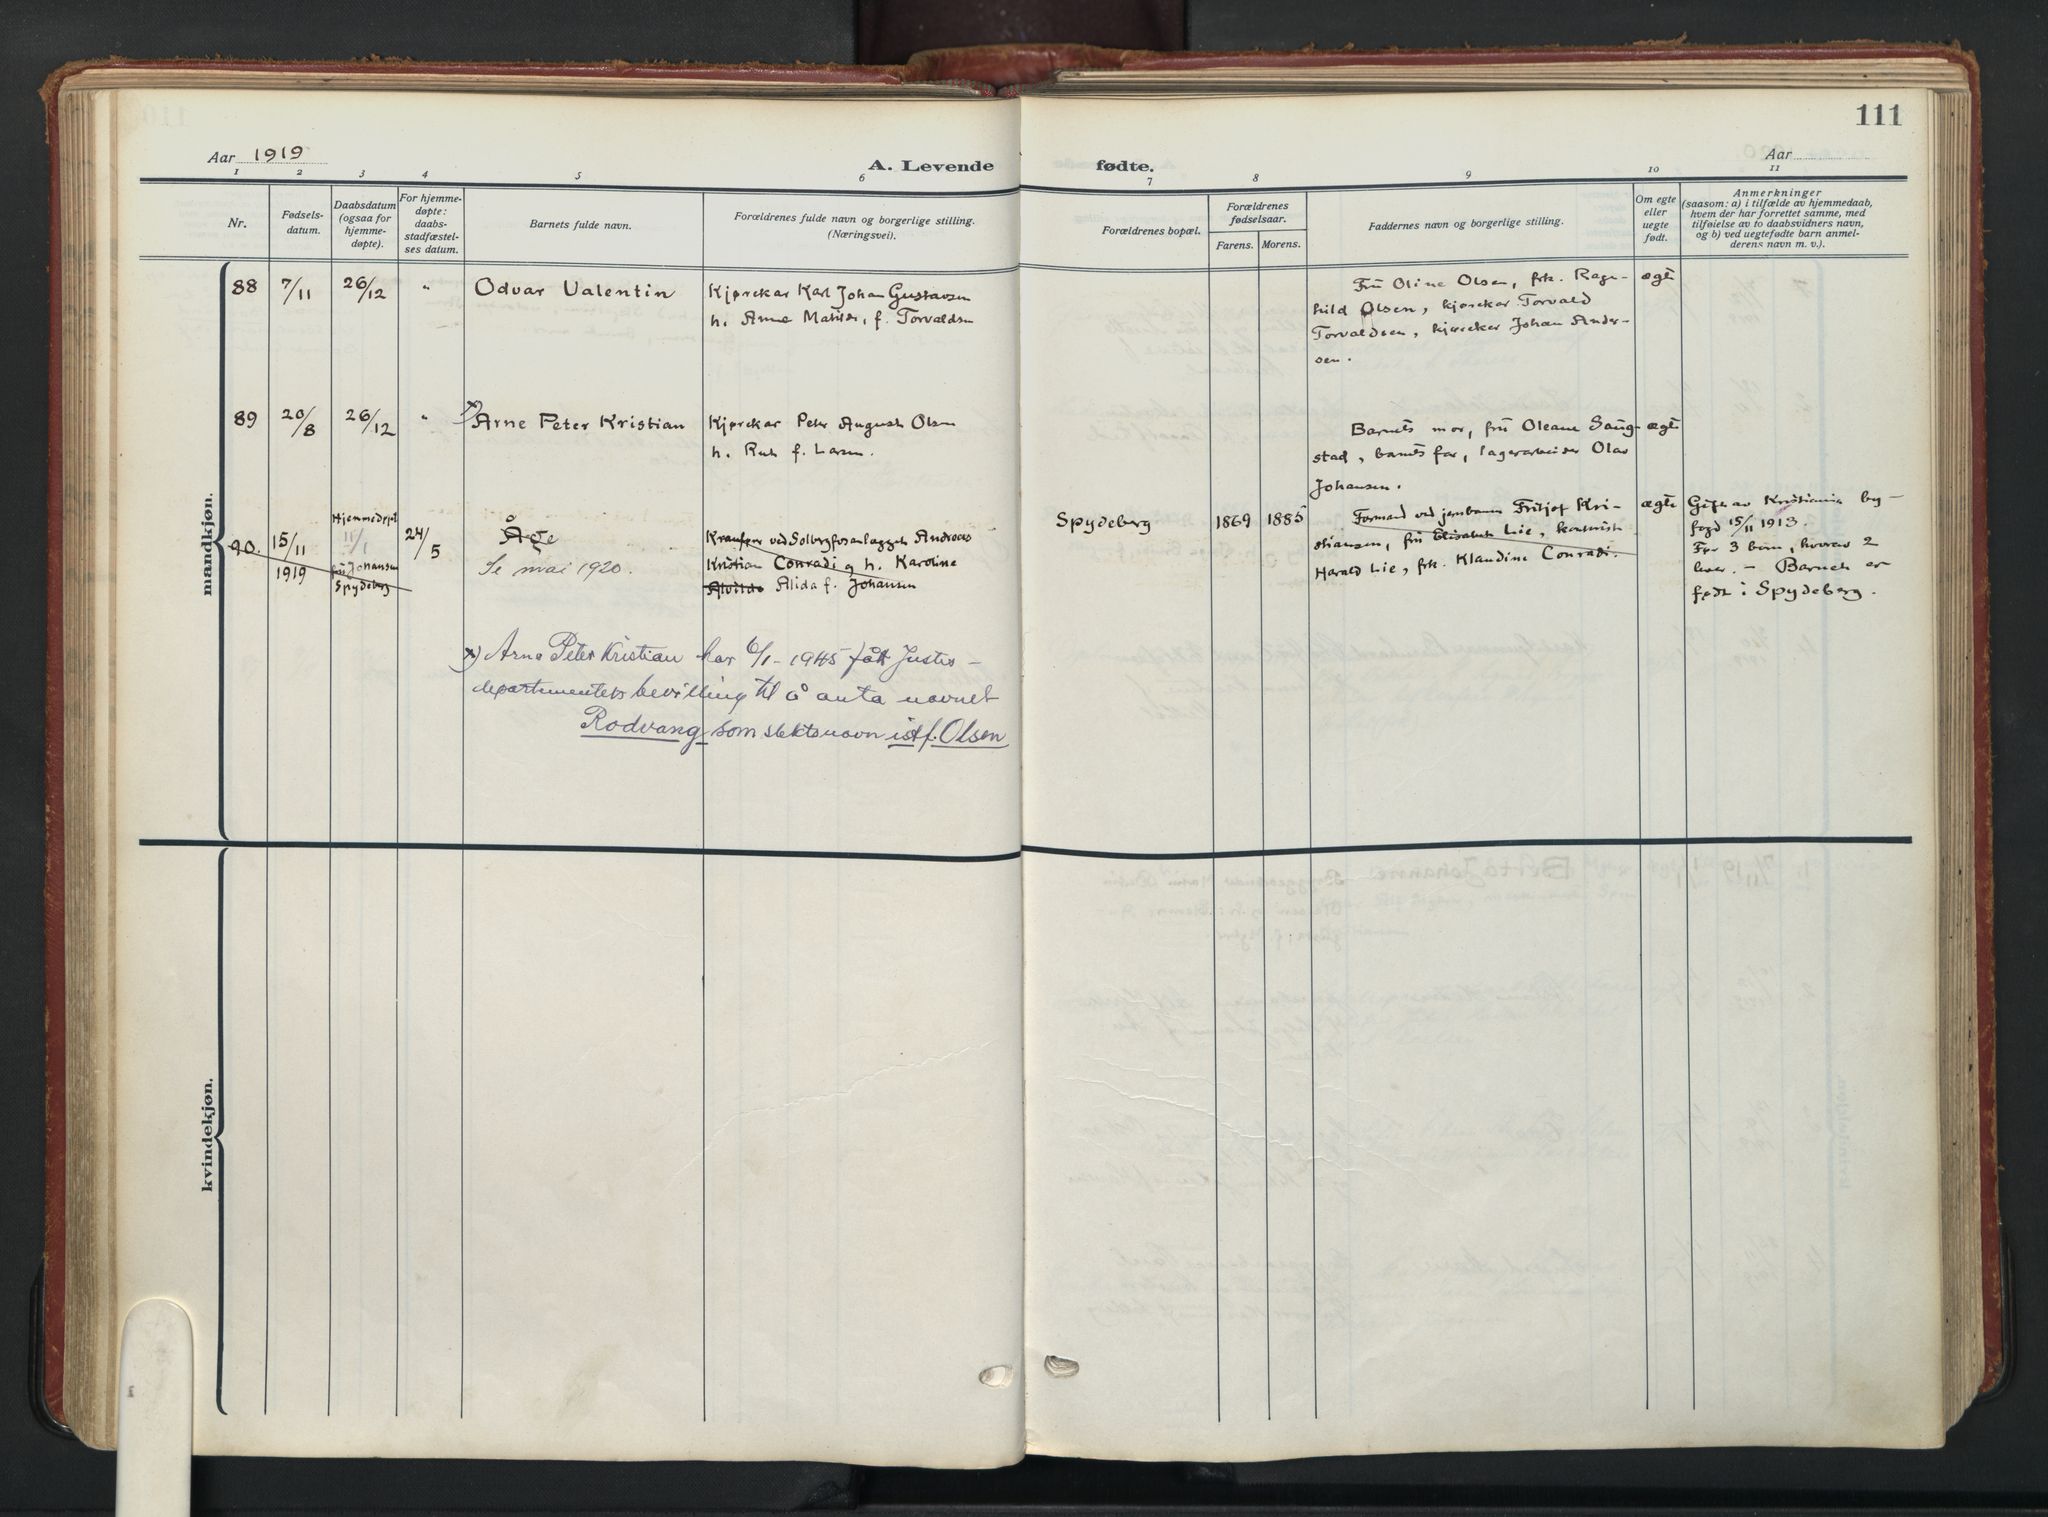 111
Aar 1919
A. Levende fødte.
Aar
1 2 3 4 5 6 7 8 9 10 11
Nr.
Fødsels-
datum.
Daabsdatum
(ogsaa for
hjemme-
døpte).
For hjemme-
døpte:
daabs-
stadfæstel-
ses datum.
Barnets fulde navn.
Forældrenes fulde navn og borgerlige stilling.
(Næringsvei).
Forældrenes bopæl.
Forældrenes
fødselsaar.
Farens. Morens.
Faddernes navn og borgerlige stilling.
Om egte
eller
uegte
født.
Anmerkninger
(saasom: a) i tilfælde av hjemmedaab,
hvem der har forrettet samme, med
tilføielse av to daabsvidners navn,
og b) ved uegtefødte barn anmel-
derens navn m. v.).
mandkjøn.
88
7/11
26/12
"
Odvar Valentin
Kjørekar Karl Johan Gustavsen
h. Anna Matilde, f. Torvaldsen
Fru Oline Olsen, frk. Ragn-
hild Olsen, kjørekar Torvald
Torvaldsen, kjørekar Johan Ander-
sen.
ægte
89
20/8
26/12
"
x) Arne Peter Kristian
Kjørekar Peter August Olsen
h. Rut f. Larsen.
Barnets mor, fru Oleane Saug-
stad, barnets far, lagerarbeider Olav
Johansen.
ægte
90.
15/11
1919
Hjemmedøpt
11/1
fru Johansen
Spydeberg
24/5
Åge
Se mai 1920.
Kranfører ved Solbergfosanlægget Andreas
Kristian Conradi og h. Karoline
Alvilde Alida f. Johansen
Spydeberg
1869
1885
Formand ved jernbanen Fritjof Kri-
stiansen, fru Elisabeth Lie, kontorist
Harald Lie, frk. Klaudine Conradi.
ægte
Gift av Kristiania by-
fogd 15/11 1913.
Før 3 barn, hvorav 2
lever. - Barnet er
født i Spydeberg.
x) Arne Peter Kristian har 6/1-1945 fått Justis-
departementets bevilling til å anta navnet
Rodvang som slektsnavn istf. Olsen
kvindekjøn.